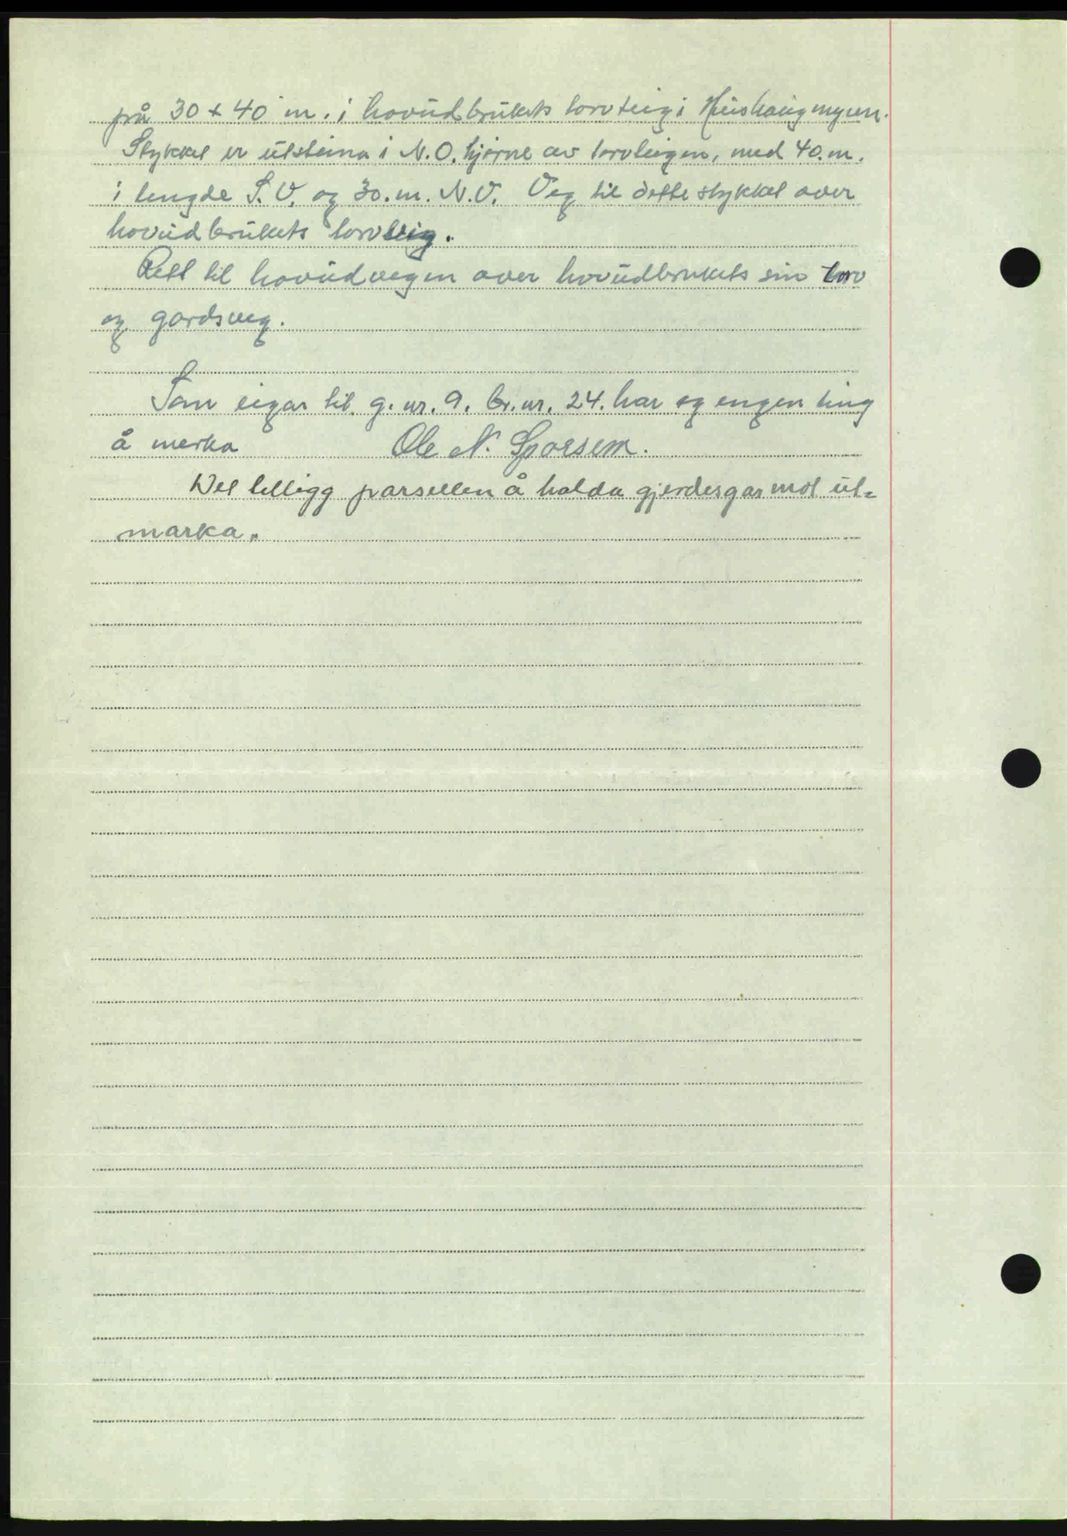 på 30 + 40 m. i hovudbrukets torvteig i Huishaugmyren.
Stykket er utsteina i N.O. hjørne av torvteigen, med 40.m.
i lengde S.V. og 30.m. N.V. Veg til dette stykket over
hovudbrukets torvteig.
Rett til hovudvegen over hovudbrukets sin torv
og gardsveg.
Som eigar til g.nr. 9. br.nr. 24. har eg engen ting
å merka Ole N. Sporsem.
Det tilligg parsellen å halda gjerdesgar mot ut-
marka.